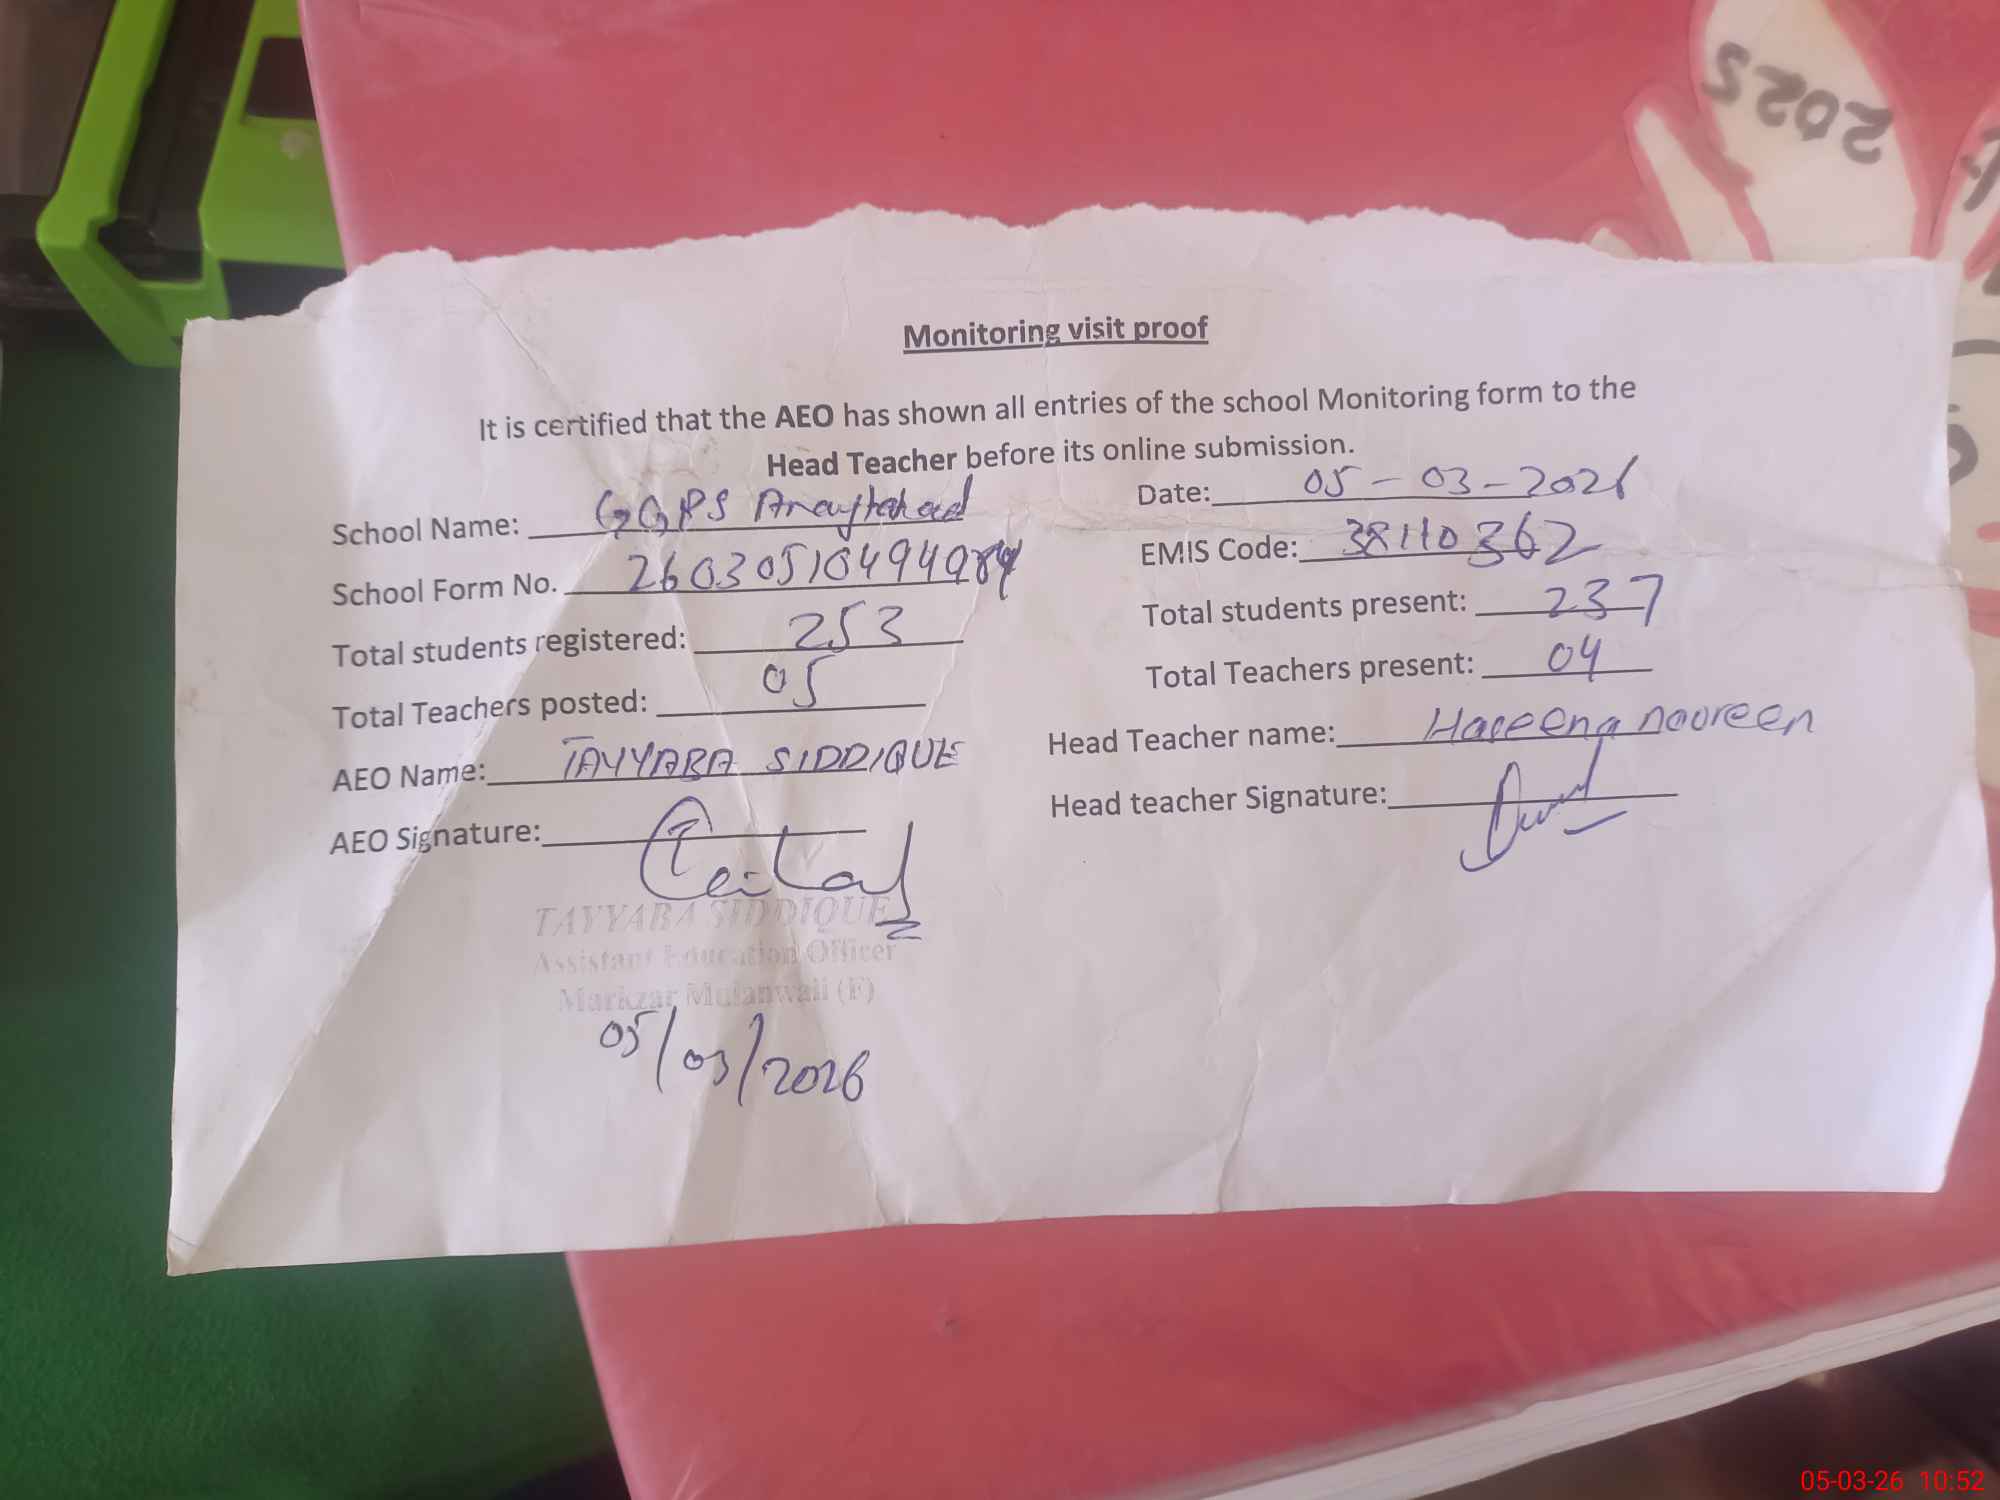 2025
Monitoring visit proof
It is certified that the AEO has shown all entries of the school Monitoring form to the
Head Teacher before its online submission.
School Name: GGPS Anaytabad
Date: 05-03-2026
School Form No.
EMIS Code: 38110362
Total students registered: 253
Total students present: 237
Total Teachers posted: 05
Total Teachers present: 04
AEO Name: TAYYABA SIDDIQUE
Head Teacher name: Haseena nooreen
AEO Signature:
Head teacher Signature:
TAYYABA SIDDIQUE
Assistant Education Officer
Markzar Mulanwali (F)
05/03/2026
05-03-26 10:52